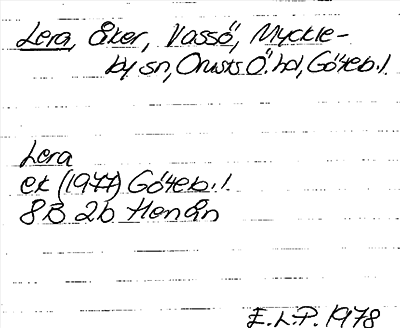 Lera, Åker, Vassö, Myckle-
by sn, Orusts Ö. hd, Göteb. l.
Lera
ek (1977) Göteb. l.
8B 2b Henån
E.L.P. 1978